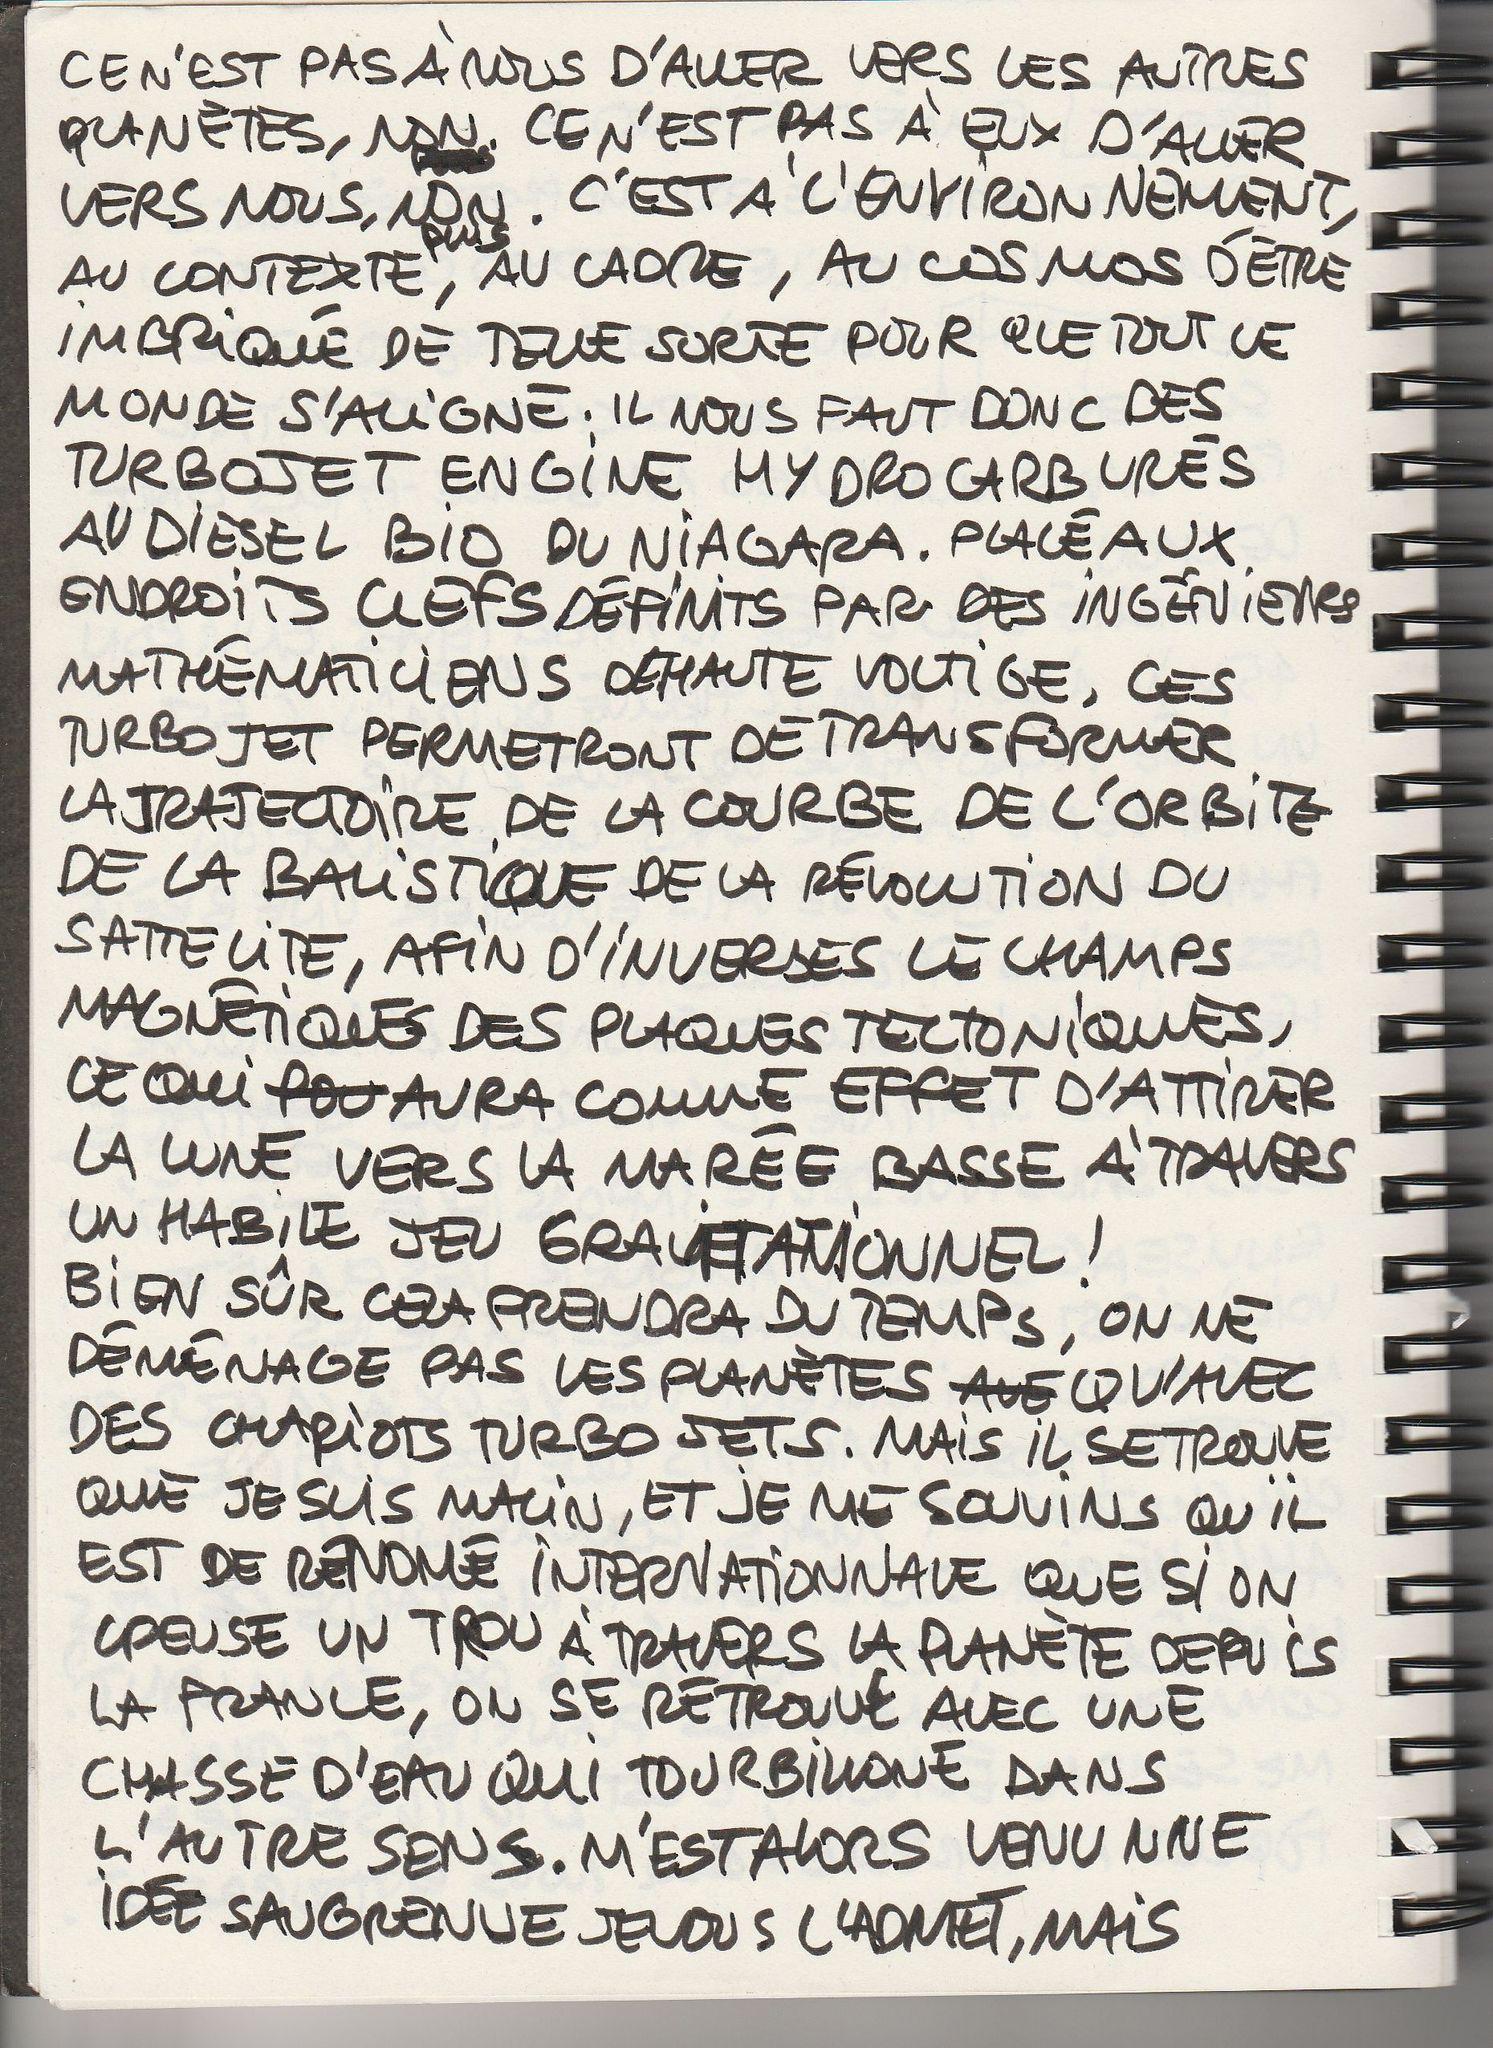 CE N'EST PAS À NOUS D'ALLER VERS LES AUTRES
PLANÈTES, NON. CE N'EST PAS À EUX D'ALLER
VERS NOUS, NON PLUS. C'EST À L'ENVIRONNEMENT,
AU CONTEXTE, AU CADRE, AU COSMOS D'ÊTRE
IMBRIQUÉ DE TELLE SORTE POUR QUE TOUT LE
MONDE S'ALIGNE. IL NOUS FAUT DONC DES
TURBOJET ENGINE HYDROCARBURÉS
AU DIESEL BIO DU NIAGARA. PLACÉ AUX
ENDROITS CLEFS DÉFINITS PAR DES INGÉNIEURS
MATHÉMATICIENS DE HAUTE VOLTIGE, CES
TURBOJET PERMETRONT DE TRANSFORMER
LA TRAJECTOIRE DE LA COURBE DE L'ORBITE
DE LA BALISTIQUE DE LA RÉVOLUTION DU
SATTELITE, AFIN D'INVERSES LE CHAMPS
MAGNÉTIQUES DES PLAQUES TECTONIQUES,
CE QUI POU AURA COMME EFFET D'ATTIRER
LA LUNE VERS LA MARÉE BASSE À TRAVERS
UN HABILE JEU GRAVITATIONNEL !
BIEN SÛR CELA PRENDRA DU TEMPS, ON NE
DÉMÉNAGE PAS LES PLANÈTES AVE QU'AVEC
DES CHARIOTS TURBO JETS. MAIS IL SE TROUVE
QUE JE SUIS MALIN, ET JE ME SOUVINS QU'IL
EST DE RENOMÉ INTERNATIONNALE QUE SI ON
CREUSE UN TROU À TRAVERS LA PLANÈTE DEPUIS
LA FRANCE, ON SE RETROUVE AVEC UNE
CHASSE D'EAU QUI TOURBILLONE DANS
L'AUTRE SENS. M'EST ALORS VENU UNE
IDÉE SAUGRENUE JE VOUS L'ADMET, MAIS